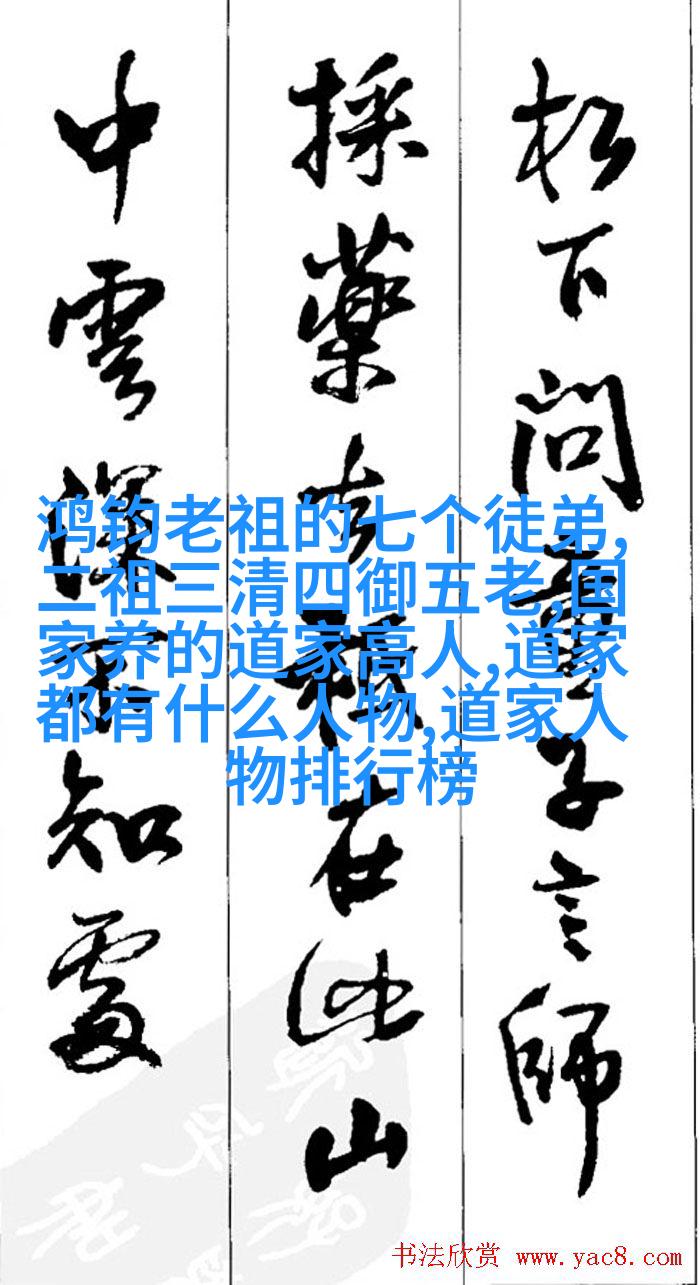 松下问童子言师
採藥去祇在此山
中雲深不知處
鸿钧老祖的七个徒弟,
二祖三清四御五老,国
家养的道家高人,道家
都有什么人物,道家人
物排行榜
书法欣赏 www.yac8.com